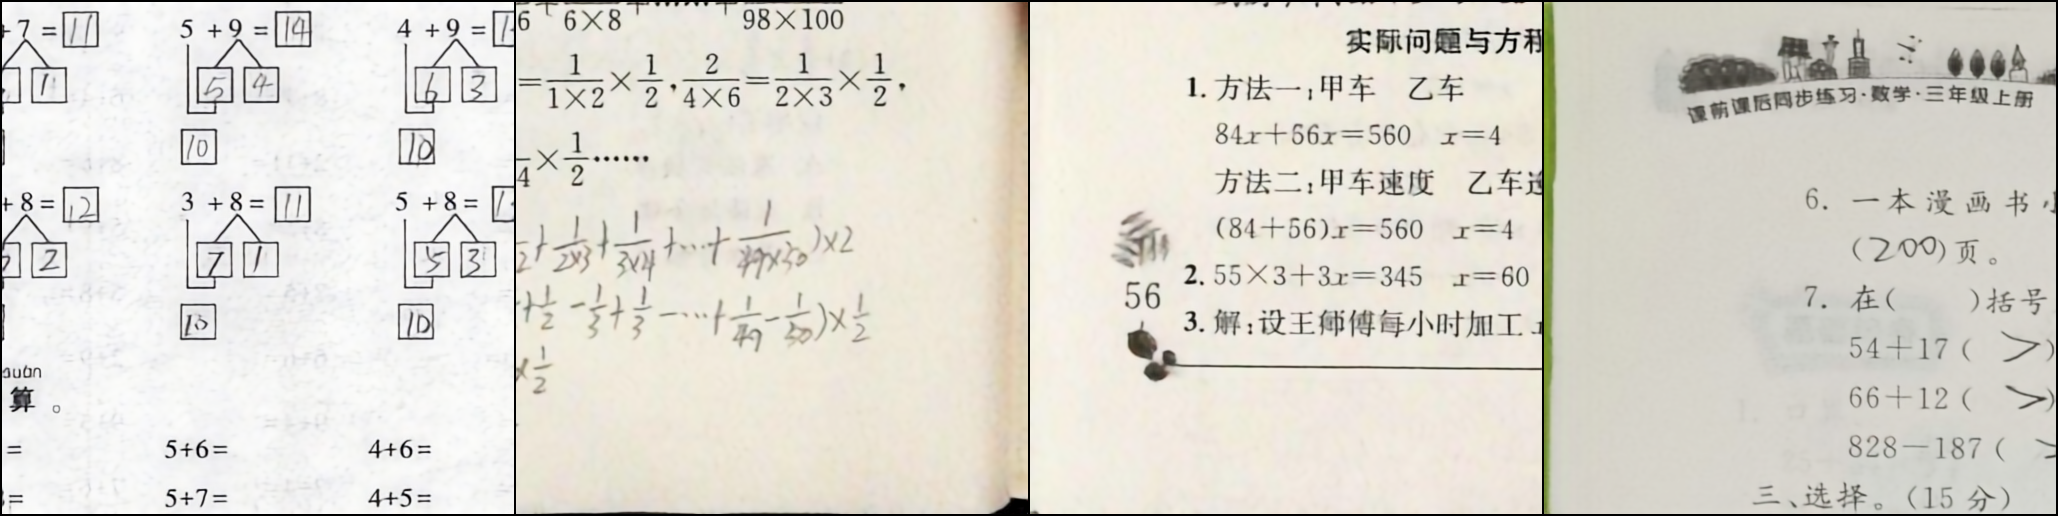 +7=11
5+9=14
4+9=1
1
5 4
6 3
10
10
+8=12
3+8=11
5+8=1
2
7 1
5 3
10
10
算。
=
5+6=
4+6=
=
5+7=
4+5=
6 + 1/(6×8) + …… + 1/(98×100)
=1/(1×2)×1/2, 2/(4×6)=1/(2×3)×1/2,
4×1/2……
2+1/(2×3)+1/(3×4)+…+1/(49×50))×2
+1/2-1/3+1/3-…+1/49-1/50)×1/2
×1/2
实际问题与方程
1. 方法一:甲车 乙车
84x+56x=560 x=4
方法二:甲车速度 乙车速
(84+56)x=560 x=4
2. 55×3+3x=345 x=60
56
3. 解:设王师傅每小时加工
课前课后同步练习·数学·三年级上册
6. 一本漫画书
(200)页。
7. 在( )括号
54+17( >)
66+12( >)
828-187(
三、选择。(15分)